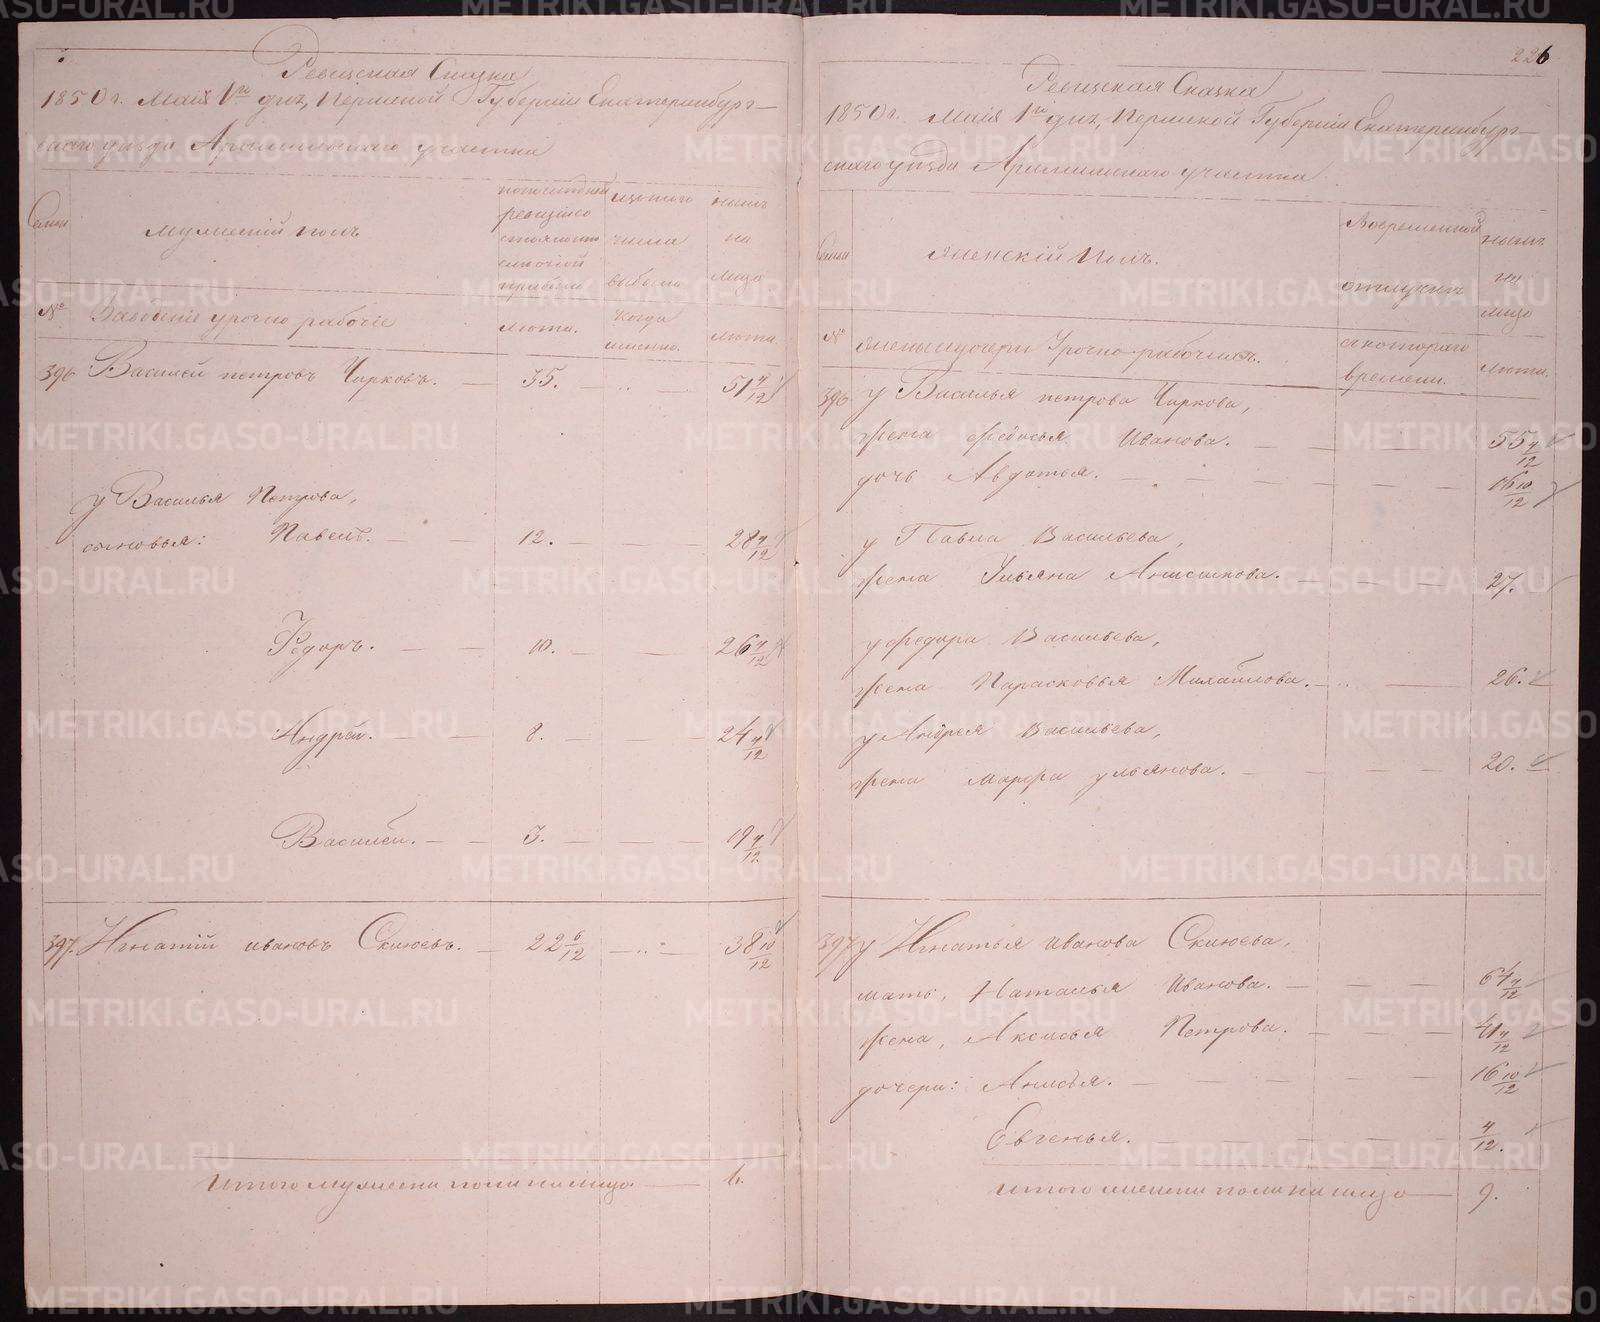 Ревизская Сказка
1850 г. Маія 1го дня, Пермской Губерніи Екатеринбург-
скаго уезда Арамильскаго участка
Семьи
Мужескій полъ
по последней
ревизіи со
стояло
и после
оной
прибыло
изъ того
числа
выбыло
ныне
на
лицо
№
Заводскіе урочно рабочіе
Лета.
Когда
именно.
лета
396 Василей петровъ Чирковъ. — 35. — .. — 51 7/12
у Василья Петрова,
сыновья: Павелъ. — 12. — — — 28 7/12
Федоръ. — — 10. — — — 26 7/12
Андрей. — — 8. — — — 24 7/12
Василей. — — 3. — — — 19 7/12
397. Игнатій ивановъ Скиюевъ. — 22 6/12 — .. — 38 10/12
Итого мужеска пола на лицо — 6.
226
Ревизская Сказка
1850 г. Маія 1го дня, Пермской Губерніи Екатеринбург-
скаго уезда Арамильскаго участка
Семьи
Женскій полъ.
Во временной
отлучке
ныне
на
лицо
№
Жены и дочери Урочно-рабочихъ.
с котораго
времени.
лета.
396 у Василья петрова Чиркова,
жена Федосья Иванова. — — — 55 7/12
дочь Авдотья. — — — — — 16 10/12
у Павла Васильева,
жена Ульяна Анисимова. — — — 27.
у Федора Васильева,
жена Парасковья Михайлова. — .. — 26.
у Андрея Васильева,
жена Марфа ульянова. — — — — 20.
397 у Игнатья иванова Скиюева,
мать, Наталья Иванова. — — — 64 7/12
жена, Аксинья Петрова. — — — 41 7/12
дочери: Анисья. — — — — — 16 10/12
Евгенья. — — — — 4/12.
итого женска пола на лицо — 9.
METRIKI.GASO-URAL.RU